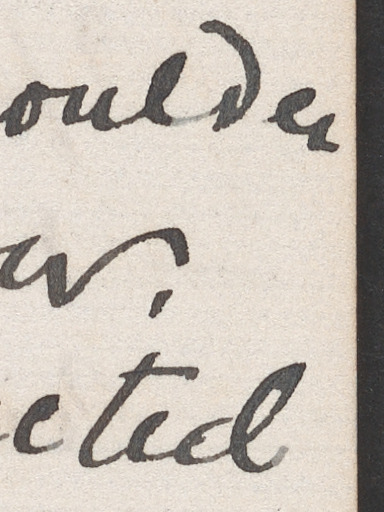 oulder
er,
cted